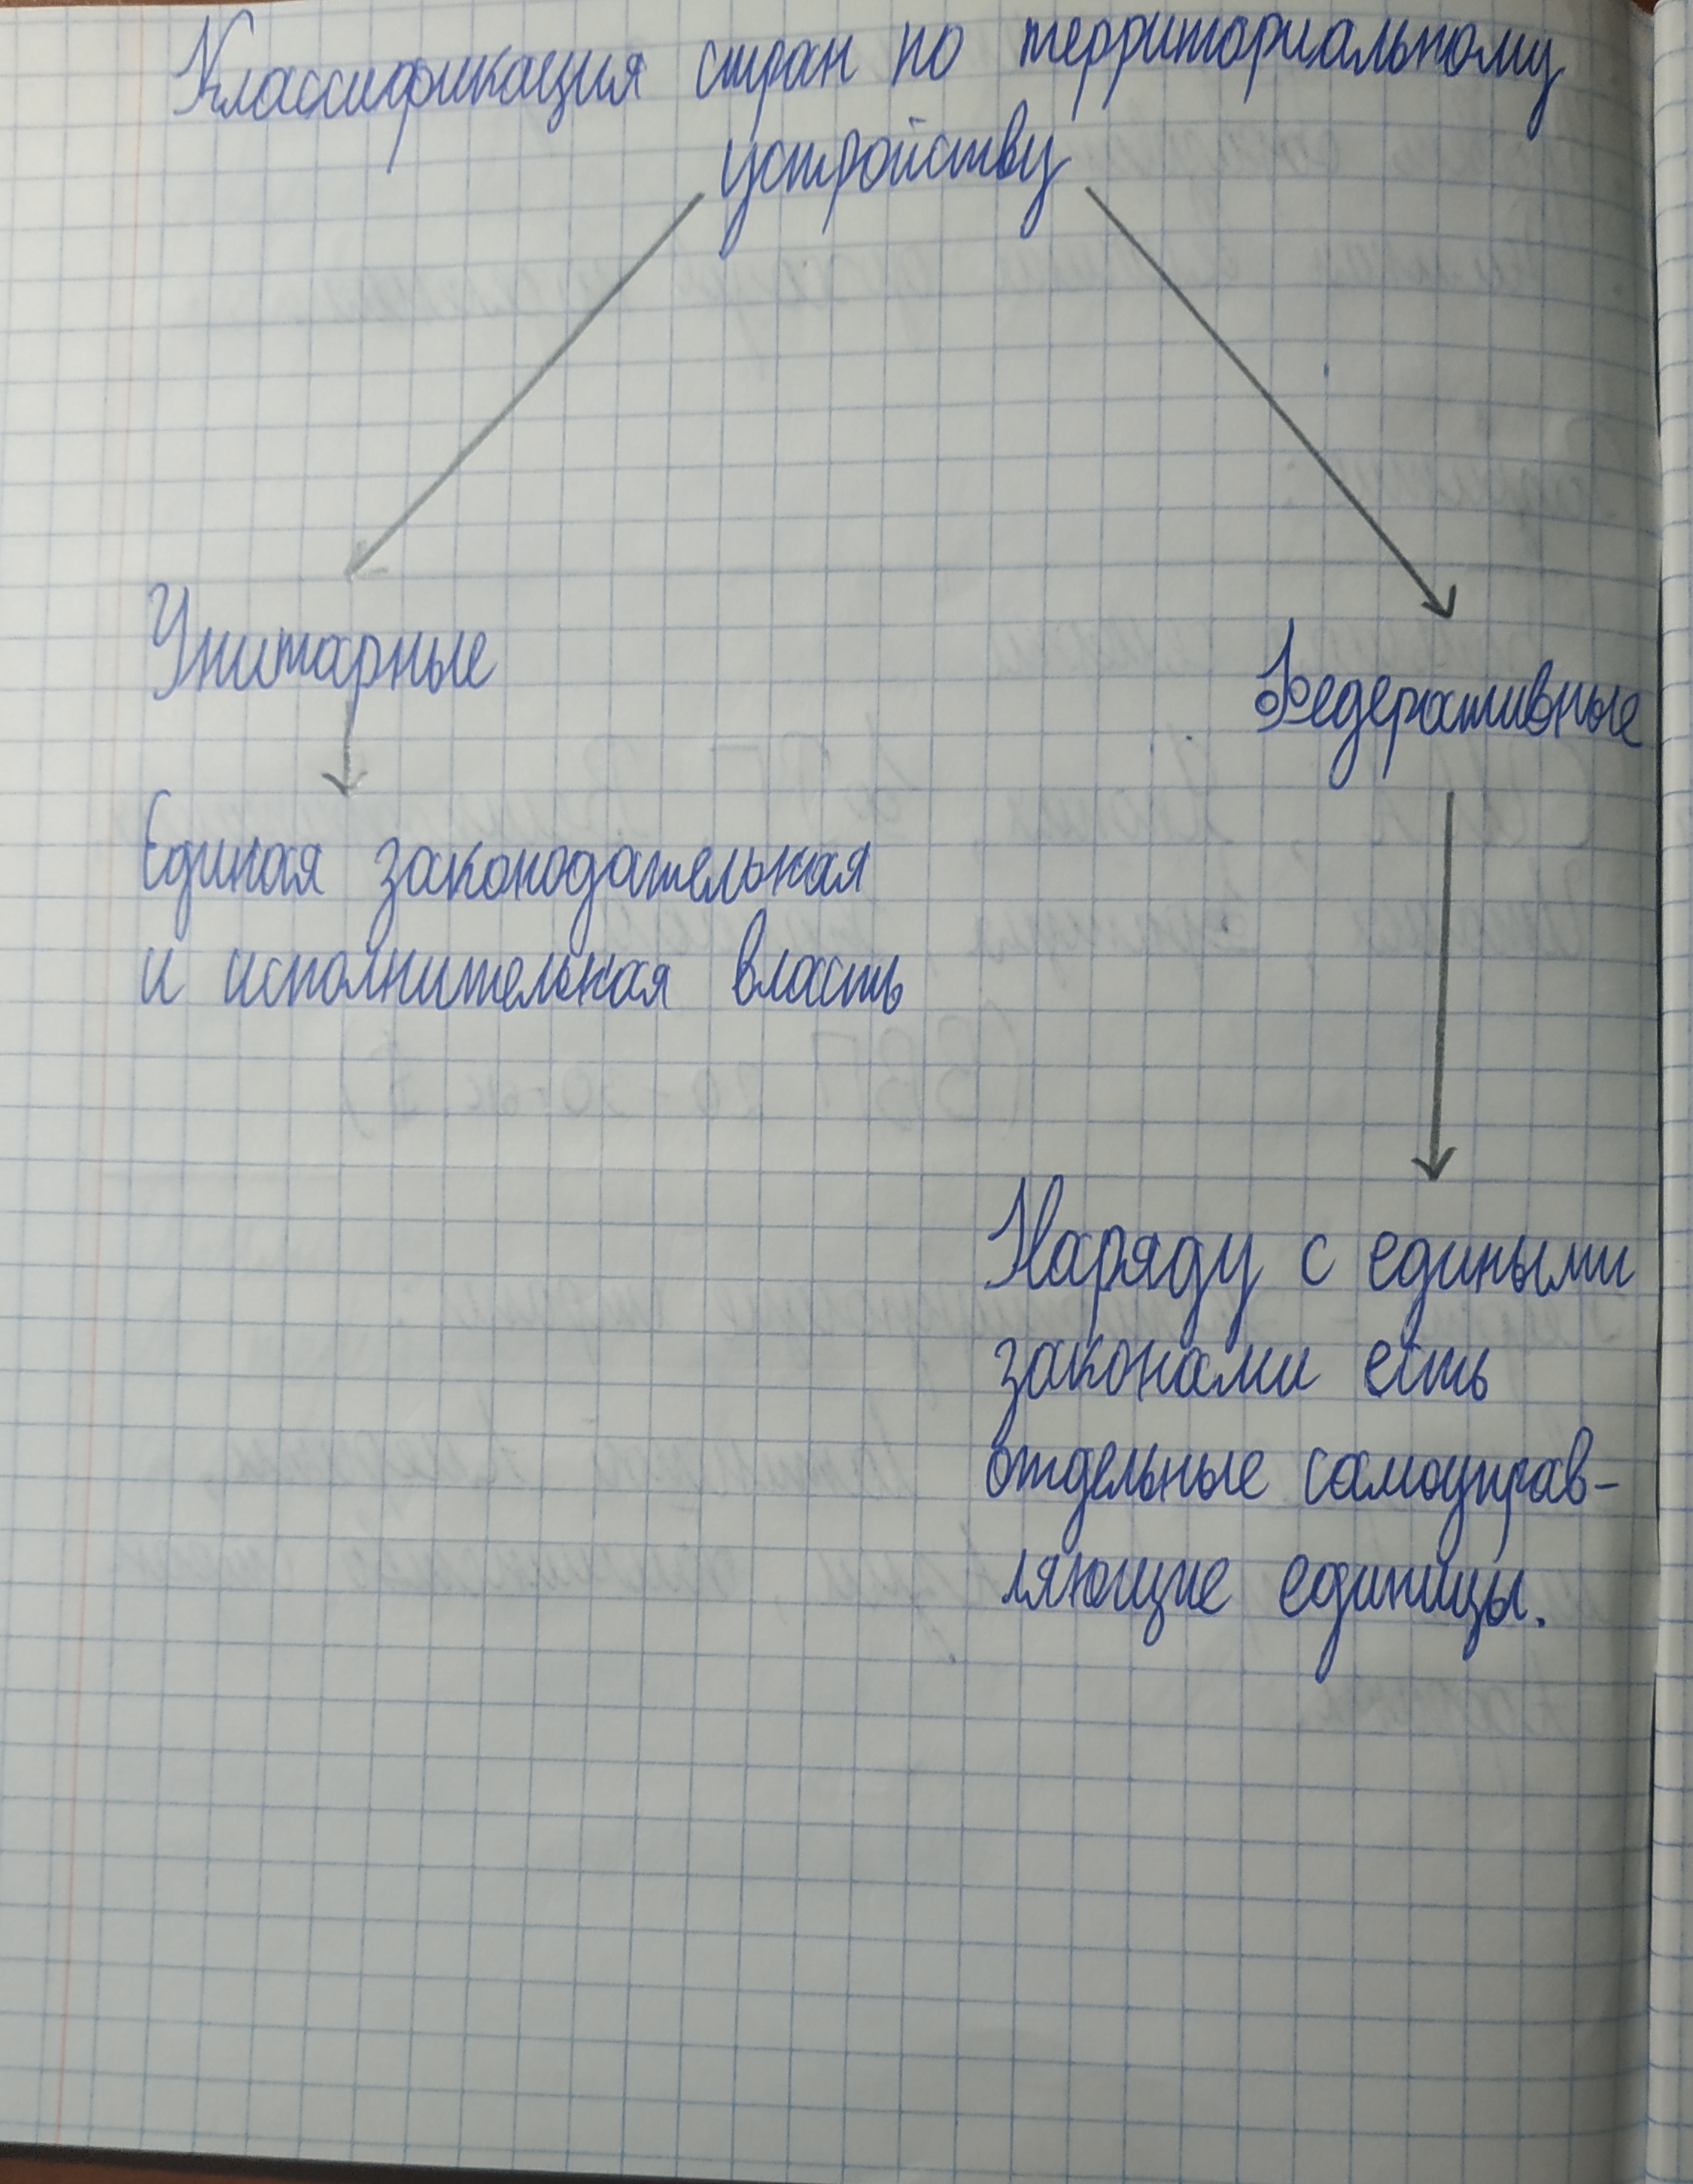 Классификация стран по территориальному
устройству
Унитарные
Федеративные
Единая законодательная
и исполнительная власть
Наряду с едиными
законами есть
отдельные самоуправ-
ляющие единицы.